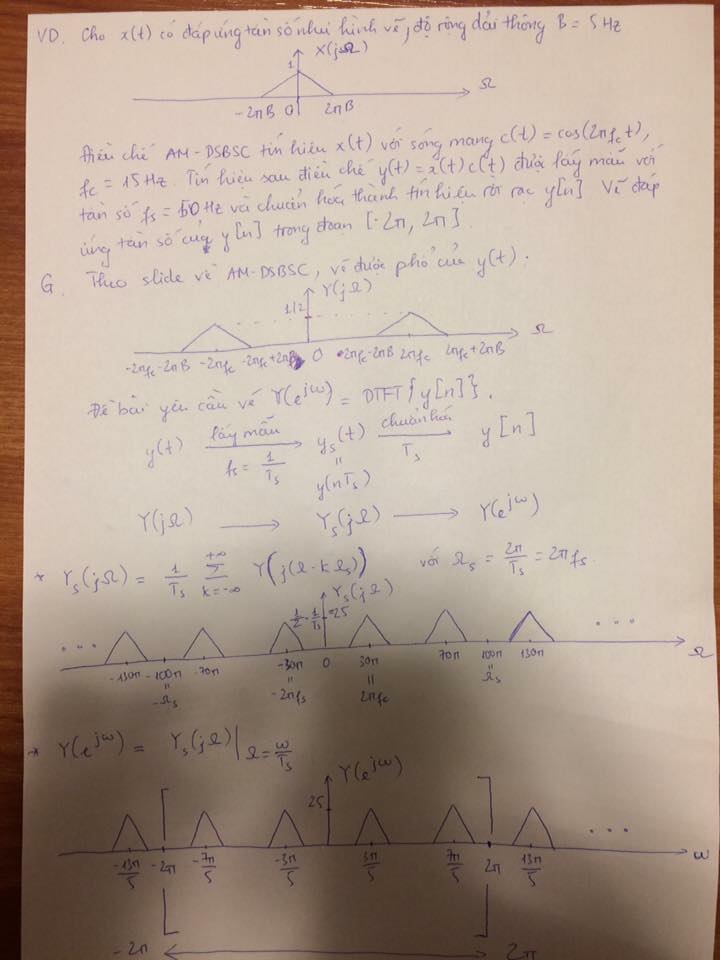 VD. Cho x(t) có đáp ứng tần số như hình vẽ, độ rộng dải thông B = 5 Hz
X(jΩ)
1
-2πB 0 2πB Ω
Điều chế AM-DSBSC tín hiệu x(t) với sóng mang c(t) = cos(2πf_c t),
f_c = 15 Hz. Tín hiệu sau điều chế y(t) = x(t)c(t) được lấy mẫu với
tần số f_s = 50 Hz và chuẩn hoá thành tín hiệu rời rạc y[n] Vẽ đáp
ứng tần số của y[n] trong đoạn [-2π, 2π].
G. Theo slide về AM-DSBSC, vẽ được phổ của y(t):
Y(jΩ)
1/2
-2πf_c-2πB -2πf_c -2πf_c+2πB 0 2πf_c-2πB 2πf_c 2πf_c+2πB Ω
Đề bài yêu cầu vẽ Y(e^{jω}) = DTFT{y[n]}.
y(t) lấy mẫu f_s = 1/T_s y_s(t) chuẩn hoá T_s y[n]
=
y(nT_s)
Y(jΩ) → Y_s(jΩ) → Y(e^{jω})
* Y_s(jΩ) = 1/T_s Σ_{k=-∞}^{+∞} Y(j(Ω-kΩ_s)) với Ω_s = 2π/T_s = 2πf_s.
Y_s(jΩ)
1/2 · 1/T_s = 25
... ...
-130π -100π -70π -30π 0 30π 70π 100π 130π Ω
= = = =
-Ω_s -2πf_s 2πf_c Ω_s
* Y(e^{jω}) = Y_s(jΩ)|_{Ω=ω/T_s}
Y(e^{jω})
25
...
-13π/5 -2π -7π/5 -3π/5 3π/5 7π/5 2π 13π/5 ω
-2π 2π